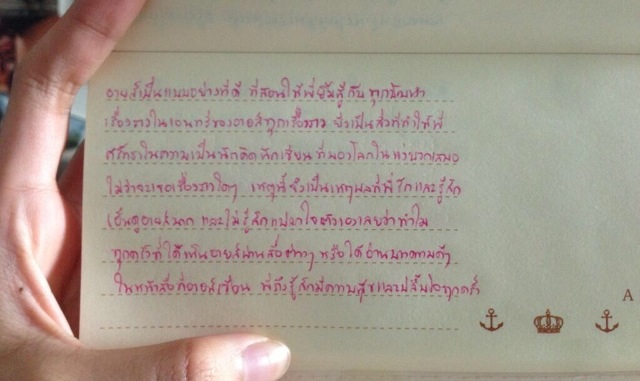 อายส์เป็นแบบอย่างที่ดี ที่สอนให้พี่ยิ้มสู้กับทุกปัญหา
เรื่องราวในเอนทรี่ของอายส์ทุกเรื่องราว ยังเป็นสิ่งที่ทำให้พี่
ศรัทธาในความเป็นนักคิดนักเขียน ที่มองโลกในแง่บวกเสมอ
ไม่ว่าจะเจอเรื่องราวใดๆ เหตุนี้จึงเป็นเหตุผลที่พี่รักและรู้สึก
เอ็นดูอายส์มาก และไม่รู้สึกแปลกใจตัวเองเลยว่าทำไม
ทุกครั้งที่ได้เห็นอายส์ผ่านสื่อต่างๆ หรือได้อ่านบทความดีๆ
ในหนังสือที่อายส์เขียน พี่ถึงรู้สึกมีความสุขและปลื้มใจทุกครั้ง
A